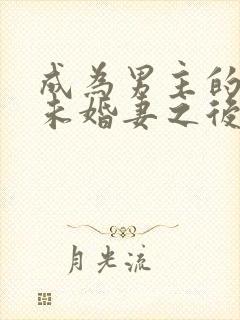 成為男主的
未婚妻之後
月光流